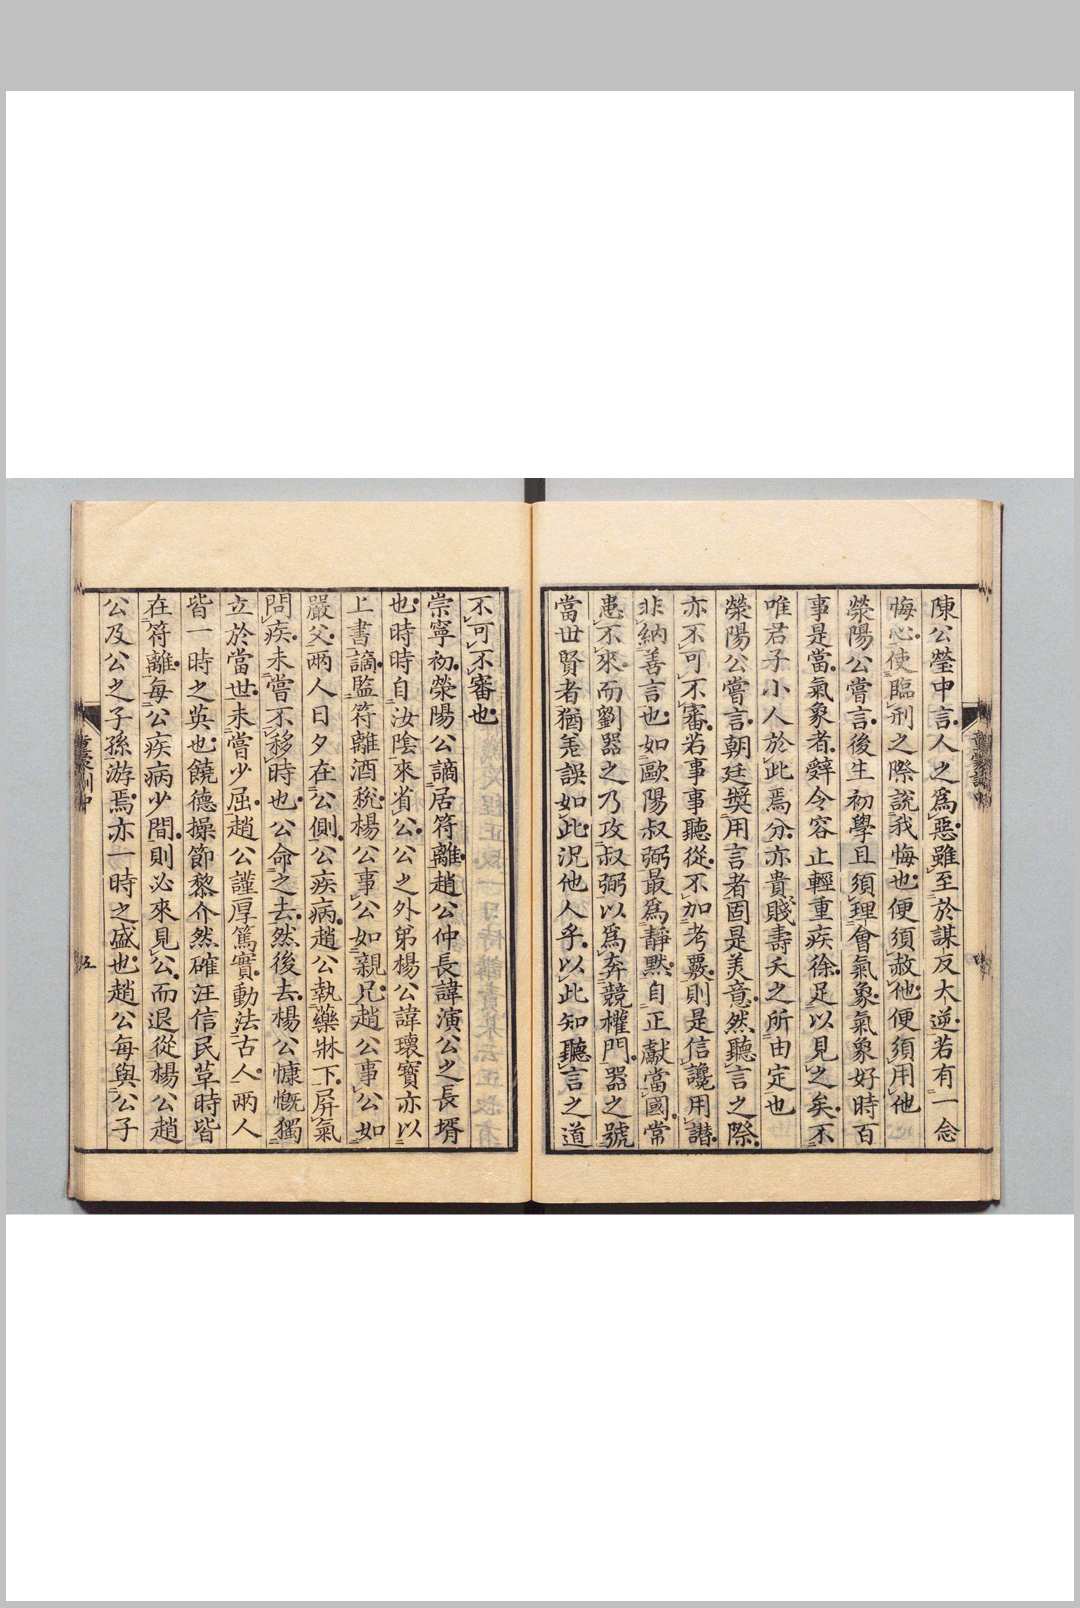 陳公瑩中言人之為惡雖至於謀反大逆若有一念
悔心使臨刑之際說我悔也便須赦他便須用他
滎陽公嘗言後生初學且須理會氣象氣象好時百
事是當氣象者辭令容止輕重疾徐足以見之矣不
唯君子小人於此焉分亦貴賤壽夭之所由定也
滎陽公嘗言朝廷獎用言者固是美意然聽言之際
亦不可不審若事事聽從不加考覈則是信讒用譖
非納善言也如歐陽叔弼最為靜默自正獻當國常
患不來而劉器之乃攻叔弼以為奔競權門器之號
當世賢者猶差誤如此況他人乎以此知聽言之道
不可不審也
崇寧初滎陽公謫居符離趙公仲長諱演公之長壻
也時時自汝陰來省公公之外弟楊公諱瓌寶亦以
上書謫監符離酒稅楊公事公如親兄趙公事公如
嚴父兩人日夕在公側公疾病趙公執藥牀下屏氣
問疾未嘗不移時也公命之去然後去楊公慷慨獨
立於當世未嘗少屈趙公謹厚篤實動法古人兩人
皆一時之英也饒德操節黎介然確汪信民革時皆
在符離每公疾病少間則必來見公而退從楊公趙
公及公之子孫游焉亦一時之盛也趙公每與公子
童蒙訓中
五